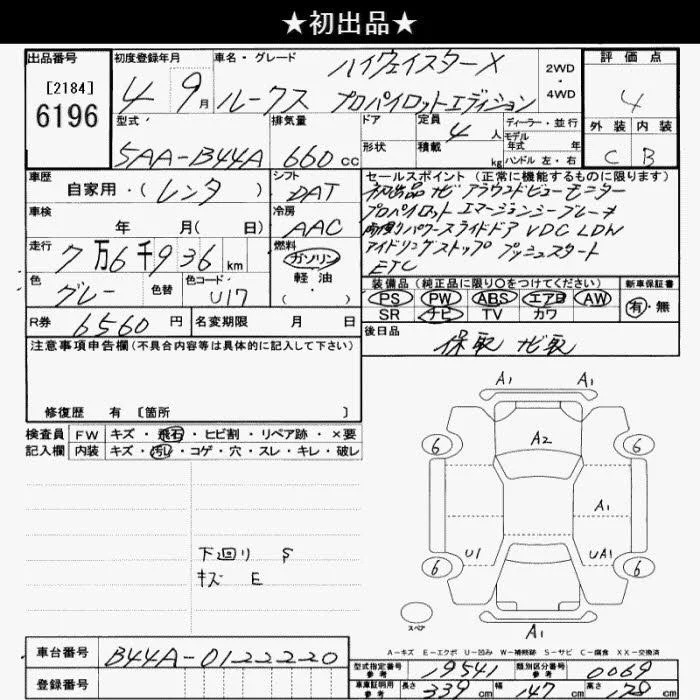 ★初出品★
出品番号
[2184]
6196
初度登録年月
4 9月
車名・グレード
ハイウェイスターX
ルークス プロパイロットエディション
2WD
・
4WD
評価点
4
外装 内装
C B
型式
5AA-B44A
排気量
660cc
ドア
形状
定員
4人
積載
kg
ディーラー・並行
モデル
年式 年
ハンドル 左・右
車歴
自家用・(レンタ)
シフト
DAT
車検
年 月( 日)
冷房
AAC
走行
7万6千936km
燃料
ガソリン
軽油
・( )
色
グレー
色替
色コード
U17
R券
6560円
名変期限 月 日
セールスポイント (正常に機能するものに限ります)
初出品 ナビ アラウンドビューモニター
プロパイロット エマージェンシーブレーキ
両側パワースライドドア VDC LDW
アイドリングストップ プッシュスタート
ETC
装備品 (純正品に限り○をつけてください)
PS PW ABS エアB AW
SR ナビ TV カワ
新車保証書
有・無
後日品
保取 ナビ取
注意事項申告欄(不具合内容等は具体的に記入して下さい)
修復歴 有 [箇所 ]
検査員
記入欄
FW キズ・飛石・ヒビ割・リペア跡・×要
内装 キズ・汚れ・コゲ・穴・スレ・キレ・破レ
下回り S
キズ E
A1 A1
A2
6 6
A1
U1 UA1
6 6
A1
スペア
A-キズ E-エクボ U-凹み W-補修跡 S-サビ C-腐食 XX-交換済
車台番号
B44A-0122220
登録番号
型式指定番号
参考
19541
類別区分番号
参考
0069
車庫証明用
参考
長さ
339cm
幅
147cm
高さ
cm